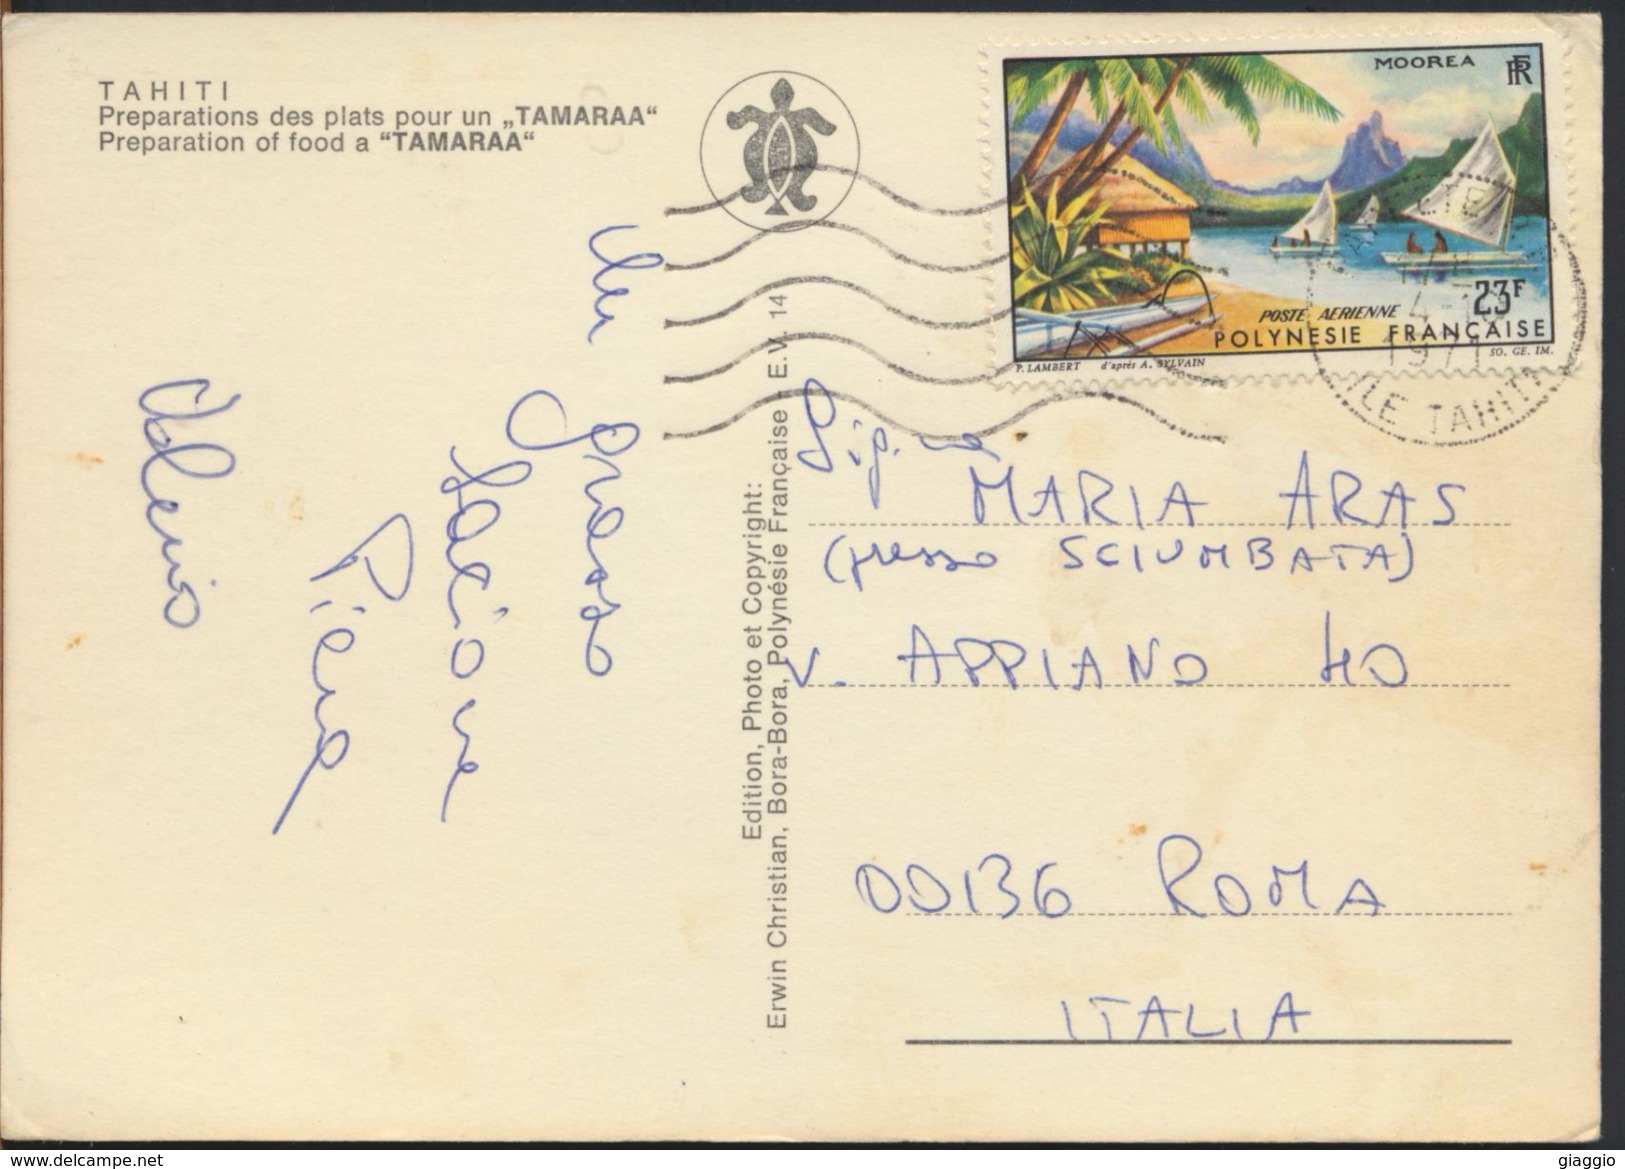 TAHITI
Preparations des plats pour un „TAMARAA“
Preparation of food a “TAMARAA“
MOOREA RF
23F
POSTE AERIENNE
POLYNESIE FRANÇAISE
P. LAMBERT d'après A. SYLVAIN SO. GE. IM.
PAPEETE
4-10
1971
ILE TAHITI
Un
grosso
bacione
Piera
Valerio
Edition, Photo et Copyright:
Erwin Christian, Bora-Bora, Polynésie Française - E. V. 14
Sig.na
MARIA ARAS
(presso SCIUMBATA)
V. APPIANO 40
00136 ROMA
ITALIA
www.delcampe.net
giaggio